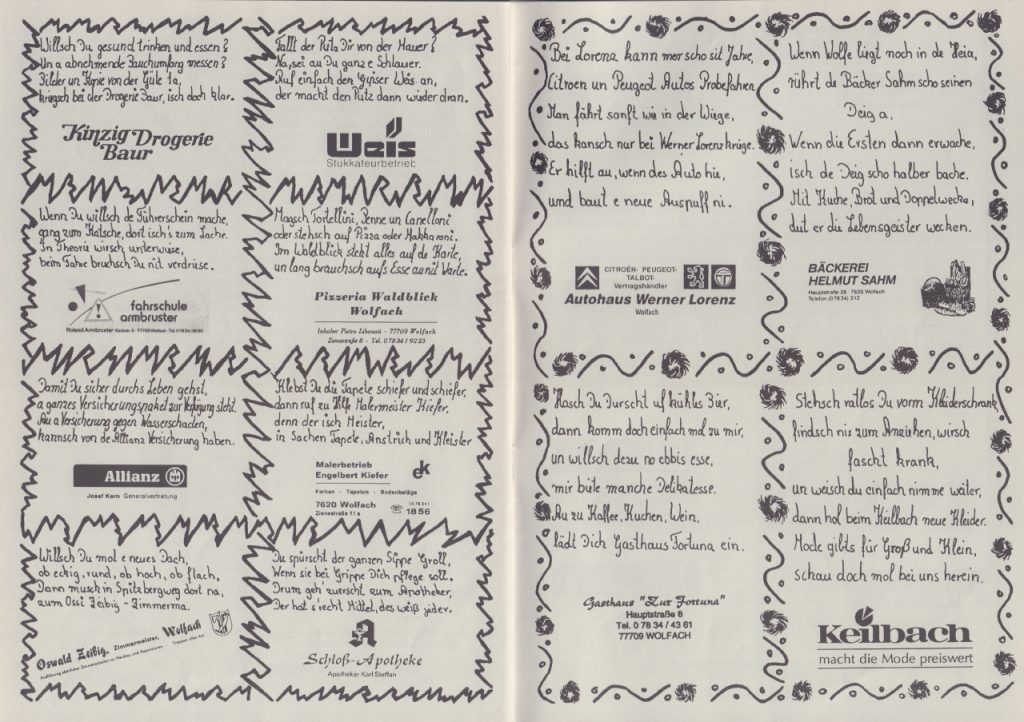 Willsch Du gesund trinken und essen?
Un a abnehmende Bauchumfang messen?
Bilder un Kopie von der Güte 1a,
kriegsch bei der Drogerie Baur, isch doch klar.
Kinzig Drogerie
Baur
Fällt der Putz Dir von der Mauer?
Na, sei au Du ganz e Schlauer.
Ruf einfach den Gipser Weis an,
der macht den Putz dann wieder dran.
Weis
Stukkateurbetrieb
Wenn Du willsch de Führerschein mache,
gang zum Katsche, dort isch's zum Lache.
In Theorie wirsch unterwiese,
beim Fahre bruchsch Du nit verdriese.
fahrschule
armbruster
Roland Armbruster
77709 Wolfach · Tel. 0 78 34 /
Magsch Tortellini, Penne un Canelloni
oder stehsch auf Pizza oder Makkaroni.
Im Waldblick steht alles auf de Karte,
un lang brauchsch aufs Esse au nit Warte.
Pizzeria Waldblick
Wolfach
Inhaber Pietro Libonati · 77709 Wolfach
Zienestraße 6 · Tel. 0 78 34 / 92 23
Damit Du sicher durchs Leben gehst,
a ganzes Versicherungspaket zur Verfügung steht.
Au a Versicherung gegen Wasserschaden,
kannsch von de Allianz Versicherung haben.
Allianz
Josef Kern Generalvertretung
Klebst Du die Tapete schiefer und schiefer,
dann ruf zu Hilfe Malermeister Kiefer.
denn der isch Meister,
in Sachen Tapete, Anstrich und Kleister
Malerbetrieb
Engelbert Kiefer
ek
Farben · Tapeten · Bodenbeläge
7620 Wolfach
Zienestraße 11 a
(0 78 34)
18 56
Willsch Du mol e neues Dach,
ob eckig, rund, ob hoch, ob flach,
Dann musch in Spitzbergweg dort na,
zum Ossi Zeibig - Zimmerma.
Oswald Zeibig, Zimmermeister, Wolfach
Du spürscht der ganzen Sippe Groll,
Wenn sie bei Grippe Dich pflege soll.
Drum geh zuerscht zum Apotheker,
Der hat s'recht Mittel, des weiß jeder.
Schloß-Apotheke
Apotheker Karl Steffan
Bei Lorenz kann mer scho sit Jahre,
Citroen un Peugeot Autos Probefahren.
Man fährt sanft wie in der Wiege,
das kansch nur bei Werner Lorenz kriege.
Er hilft au, wenn des Auto hie,
und baut e neue Auspuff ni.
CITROËN- PEUGEOT-
TALBOT-
Vertragshändler
Autohaus Werner Lorenz
Wolfach
Wenn Wolfe liegt noch in de Heia,
rührt de Bäcker Sahm scho seinen
Deig a.
Wenn die Ersten dann erwache,
isch de Deig scho halber bache.
Mit Kuche, Brot und Doppelwecka,
dut er die Lebensgeister wecken.
BÄCKEREI
HELMUT SAHM
Hauptstraße 26 · 7620 Wolfach
Telefon (0 78 34) 312
Hasch Du Durscht uf kühles Bier,
dann komm doch einfach mol zu mir,
un willsch dezu no ebbis esse,
mir biete manche Delikatesse.
Au zu Kaffee, Kuchen, Wein,
lädt Dich Gasthaus Fortuna ein.
Gasthaus "Zur Fortuna"
Hauptstraße 8
Tel. 0 78 34 / 43 61
77709 WOLFACH
Stehsch ratlos Du vorm Kleiderschrank,
findsch nix zum Anziehen, wirsch
fascht krank,
un weisch du einfach nimme weiter,
dann hol beim Keilbach neue Kleider.
Mode gibts für Groß und Klein,
schau doch mol bei uns herein.
Keilbach
macht die Mode preiswert